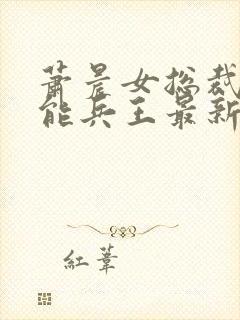 萧晨女总裁
能兵王最新
红苇